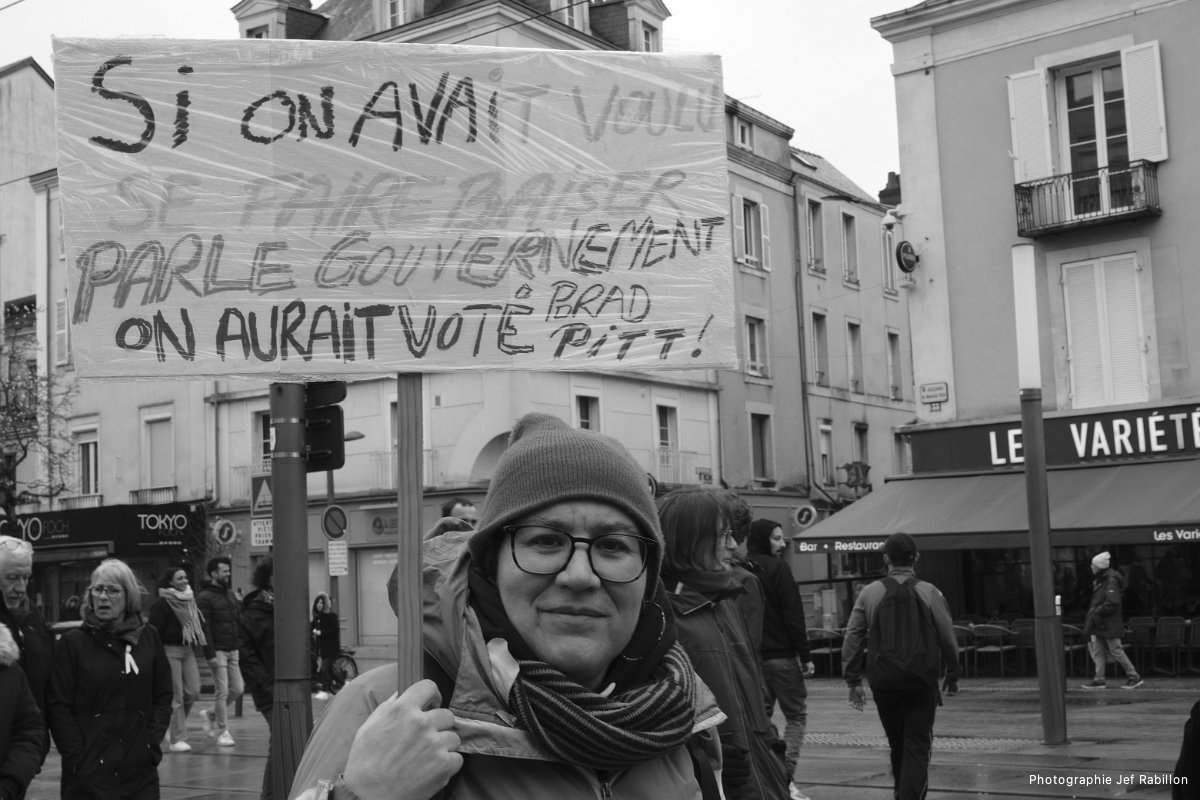 Si ON AVAiT VOULU
SE FAIRE BAISER
PAR LE GOUVERNEMENT
ON AURAiT VOTÉ BRAD
PiTT !
TOKYO
LES VARIÉTÉ
Bar • Restaura
les Varié
Photographie Jef Rabillon